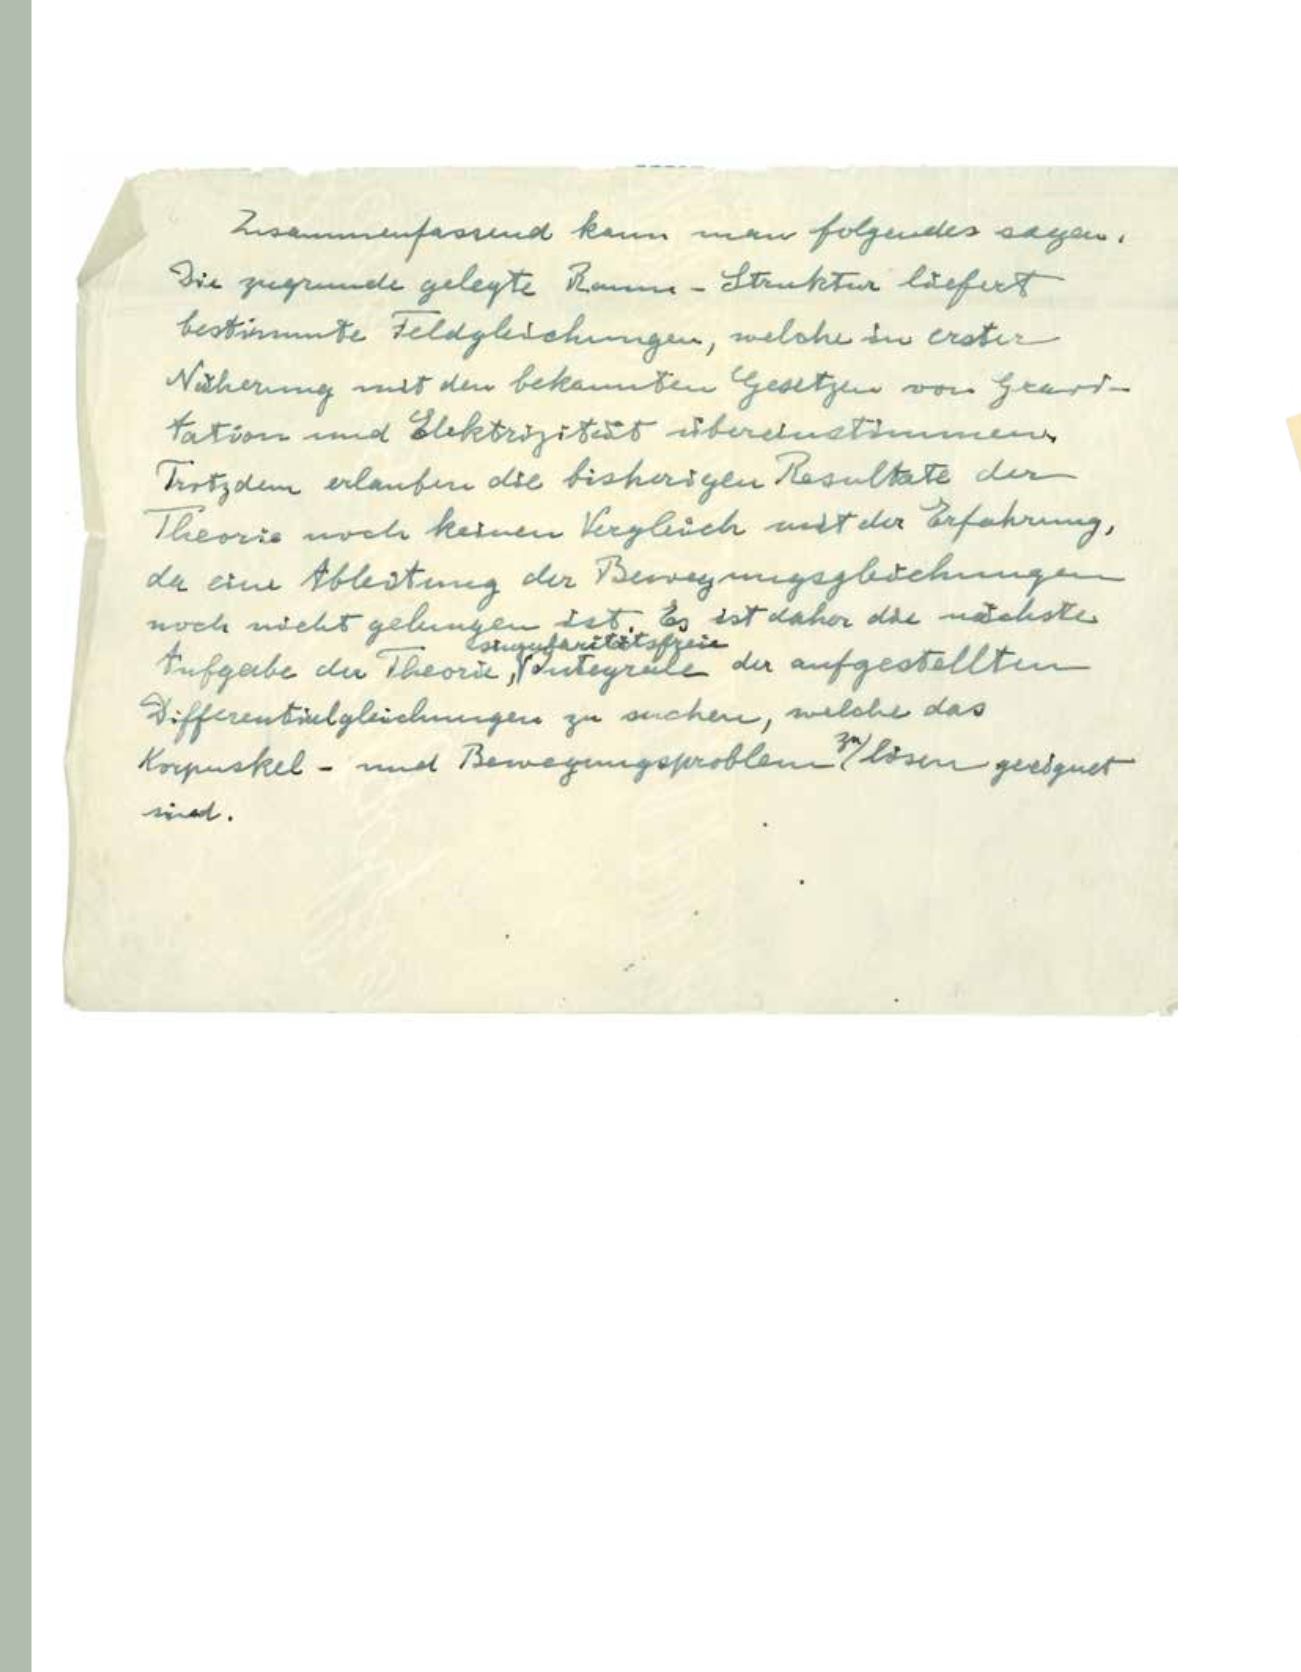 Zusammenfassend kann man folgendes sagen.
Die zugrunde gelegte Raum-Struktur liefert
bestimmte Feldgleichungen, welche in erster
Näherung mit den bekannten Gesetzen von Gravi-
tation und Elektrizität übereinstimmen.
Trotzdem erlauben die bisherigen Resultate der
Theorie noch keinen Vergleich mit der Erfahrung,
da eine Ableitung der Bewegungsgleichungen
noch nicht gelungen ist. Es ist daher die nächste
singularitätsfreie
Aufgabe der Theorie, Integrale der aufgestellten
Differentialgleichungen zu suchen, welche das
Korpuskel- und Bewegungsproblem zu lösen geeignet
sind.